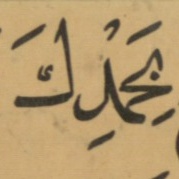 بِحَمْدِكَ